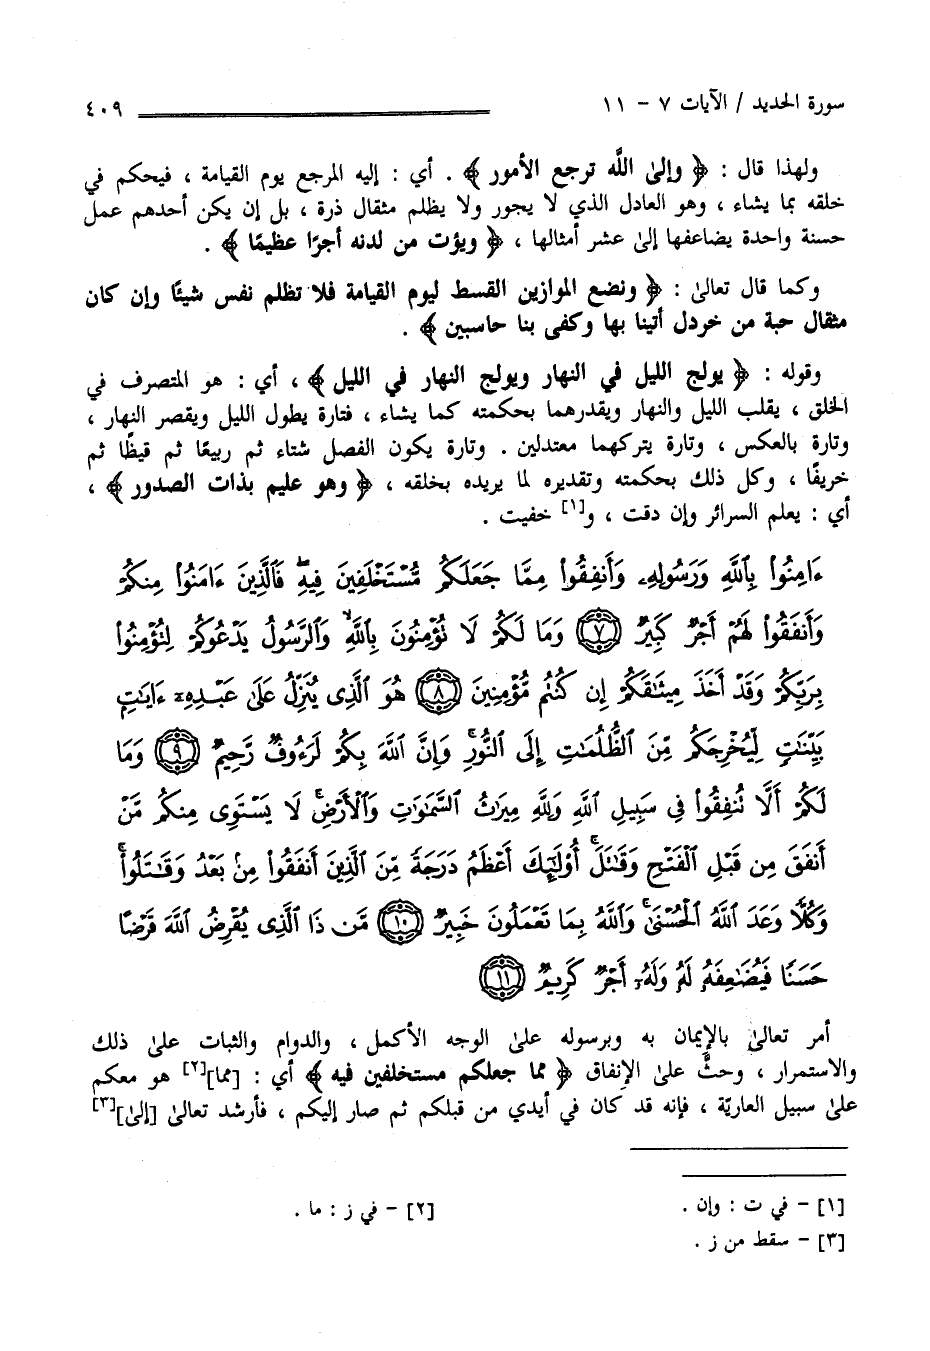 سورة الحديد / الآيات ٧ - ١١ ٤٠٩
ولهذا قال : ﴿ وإلى الله ترجع الأمور ﴾ . أي : إليه المرجع يوم القيامة ، فيحكم في
خلقه بما يشاء ، وهو العادل الذي لا يجور ولا يظلم مثقال ذرة ، بل إن يكن أحدهم عمل
حسنة واحدة يضاعفها إلى عشر أمثالها ، ﴿ ويؤت من لدنه أجرًا عظيمًا ﴾ .
وكما قال تعالى : ﴿ ونضع الموازين القسط ليوم القيامة فلا تظلم نفس شيئًا وإن كان
مثقال حبة من خردل أتينا بها وكفى بنا حاسبين ﴾ .
وقوله : ﴿ يولج الليل في النهار ويولج النهار في الليل ﴾ ، أي : هو المتصرف في
الخلق ، يقلب الليل والنهار ويقدرهما بحكمته كما يشاء ، فتارة يطول الليل ويقصر النهار ،
وتارة بالعكس ، وتارة يتركهما معتدلين . وتارة يكون الفصل شتاء ثم ربيعًا ثم قيظًا ثم
خريفًا ، وكل ذلك بحكمته وتقديره لما يريده بخلقه ، ﴿ وهو عليم بذات الصدور ﴾ ،
أي : يعلم السرائر وإن دقت ، و[١] خفيت .
ءَامِنُوا۟ بِٱللَّهِ وَرَسُولِهِۦ وَأَنفِقُوا۟ مِمَّا جَعَلَكُم مُّسْتَخْلَفِينَ فِيهِ ۖ فَٱلَّذِينَ ءَامَنُوا۟ مِنكُمْ
وَأَنفَقُوا۟ لَهُمْ أَجْرٌ كَبِيرٌ ﴿٧﴾ وَمَا لَكُمْ لَا تُؤْمِنُونَ بِٱللَّهِ ۙ وَٱلرَّسُولُ يَدْعُوكُمْ لِتُؤْمِنُوا۟
بِرَبِّكُمْ وَقَدْ أَخَذَ مِيثَٰقَكُمْ إِن كُنتُم مُّؤْمِنِينَ ﴿٨﴾ هُوَ ٱلَّذِى يُنَزِّلُ عَلَىٰ عَبْدِهِۦٓ ءَايَٰتٍۭ
بَيِّنَٰتٍ لِّيُخْرِجَكُم مِّنَ ٱلظُّلُمَٰتِ إِلَى ٱلنُّورِ ۚ وَإِنَّ ٱللَّهَ بِكُمْ لَرَءُوفٌ رَّحِيمٌ ﴿٩﴾ وَمَا
لَكُمْ أَلَّا تُنفِقُوا۟ فِى سَبِيلِ ٱللَّهِ وَلِلَّهِ مِيرَٰثُ ٱلسَّمَٰوَٰتِ وَٱلْأَرْضِ ۚ لَا يَسْتَوِى مِنكُم مَّنْ
أَنفَقَ مِن قَبْلِ ٱلْفَتْحِ وَقَٰتَلَ ۚ أُو۟لَٰٓئِكَ أَعْظَمُ دَرَجَةً مِّنَ ٱلَّذِينَ أَنفَقُوا۟ مِنۢ بَعْدُ وَقَٰتَلُوا۟ ۚ
وَكُلًّا وَعَدَ ٱللَّهُ ٱلْحُسْنَىٰ ۚ وَٱللَّهُ بِمَا تَعْمَلُونَ خَبِيرٌ ﴿١٠﴾ مَّن ذَا ٱلَّذِى يُقْرِضُ ٱللَّهَ قَرْضًا
حَسَنًا فَيُضَٰعِفَهُۥ لَهُۥ وَلَهُۥٓ أَجْرٌ كَرِيمٌ ﴿١١﴾
أمر تعالى بالإيمان به وبرسوله على الوجه الأكمل ، والدوام والثبات على ذلك
والاستمرار ، وحثَّ على الإنفاق ﴿ مما جعلكم مستخلفين فيه ﴾ أي : [مما][٢] هو معكم
على سبيل العاريّة ، فإنه قد كان في أيدي من قبلكم ثم صار إليكم ، فأرشد تعالى [إلى][٣]
[١] - في ت : وإن . [٢] - في ز : ما .
[٣] - سقط من ز .